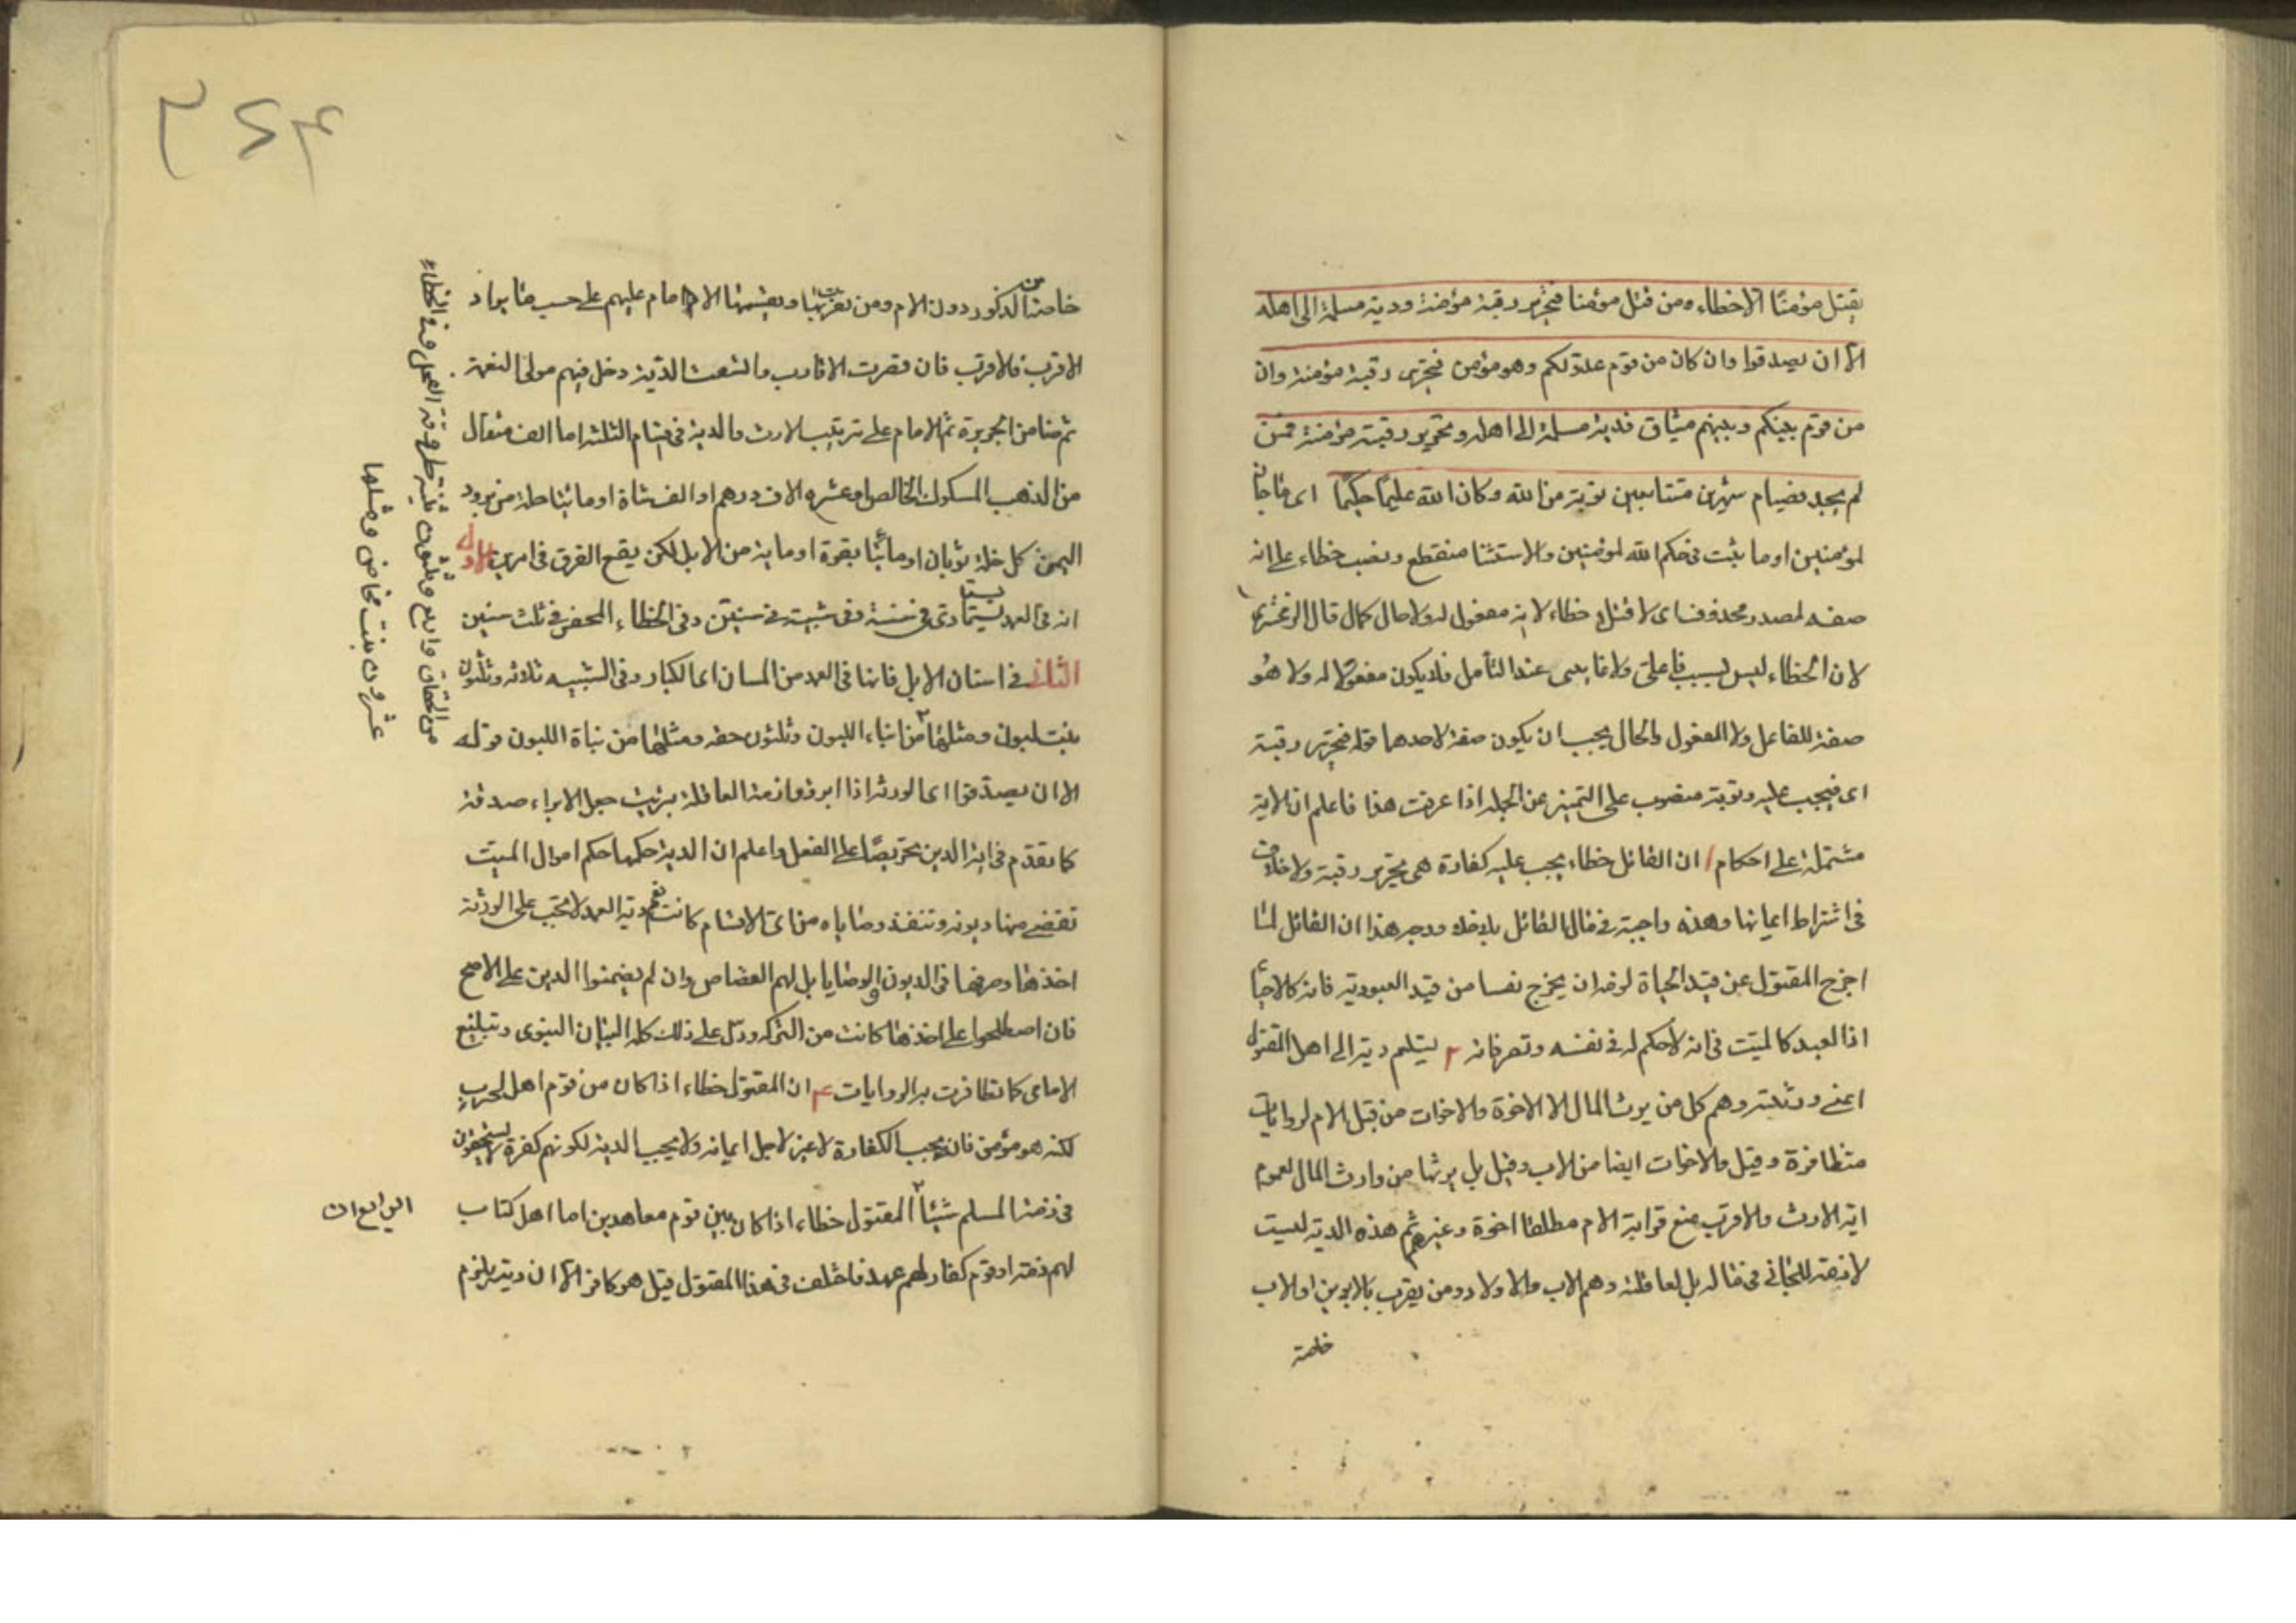 يقتل مؤمنًا الا خطاء ومن قتل مؤمنا فتحرير رقبة مؤمنة ودية مسلمة الى اهله
الا ان يصدقوا وان كان من قوم عدو لكم وهو مؤمن فتحرير رقبة مؤمنة وان
من قوم بينكم وبينهم ميثاق فدية مسلمة الى اهله وتحرير رقبة مؤمنة فمن
لم يجد فصيام شهرين متتابعين توبة من الله وكان الله عليمًا حكيمًا اى ما جاز
لمؤمنين او ما يثبت فى حكم الله لمؤمنين والاستثنا منقطع ونصب خطاء على انه
صفه لمصدر محذوف اى لا قتلا خطاء لا انه مفعول له ولا حال كما قال الزمخشرى
لان الخطاء ليس بسبب فاعلى ولا غايى عند التأمل فلا يكون مفعولا له ولا هو
صفة للفاعل ولا المفعول والحال يجب ان يكون صفة لاحدهما قوله فتحرير رقبة
اى فيجب عليه وتوبة منصوب على التميز عن الجملة اذا عرفت هذا فاعلم ان الاية
مشتملة على احكام ا ان القاتل خطاء يجب عليه كفارة هى تحرير رقبة ولا خلاف
فى اشتراط ايمانها وهذه واجبة فى مال القاتل بلا خلاف ووجه هذا ان القاتل لما
اخرج المقتول عن قيد الحياة لزمه ان يخرج نفسا من قيد العبودية فانه كالاحيا
اذ العبد كالميت فى انه لا حكم له فى نفسه وتصرفاته ٢ تسليم دية الى اهل المقتول
اعنى ورثته وهم كل من يرث المال الا الاخوة والاخوات من قبل الام لروايات
متظافرة وقيل والاخوات ايضا من الاب وقيل بل يرثها من وارث المال لعموم
اية الارث والاقرب منع قرابة الام مطلقا اخوة وغيرهم ثم هذه الدية ليست
لازمة للجانى فى ماله بل لعاقلته وهم الاب والاولاد ومن يقرب بالابوين او الاب
خاصة
خاصة من الذكور دون الام ومن تقرب بها ويقسمها الامام عليهم على حسب ما يراد
الاقرب فالاقرب فان قصرت الاقارب واتسعت الدية دخل فيهم مولى النعمة
ثم ضامن الجريرة ثم الامام على ترتيب الارث والدية فى اقسام الثلثة اما الف مثقال
من الذهب المسكوك الخالص او عشره الاف درهم او الف شاة او مائتا حلة من برود
اليمن كل حلة ثوبان او مائتا بقرة او ماية من الابل لكن يقع الفرق فى امرين الاول
انه فى العمد يستادى فى سنة وفى شبهه فى سنتين وفى الخطاء المحض فى ثلث سنين
الثانى فى اسنان الابل فانها فى العمد من المسان اى الكبار وفى الشبيه ثلاثه وثلثون
بنت لبون ومثلها من ابناء اللبون وثلثون حقه ومثلها من بناة اللبون قوله
الا ان يصدقوا اى الورثه اذا ابروا ذمة العاقلة برئت جعل الابراء صدقة
كما تقدم فى اية الدين تحريصًا على الفعل واعلم ان الدية حكمها حكم اموال الميت
تقضى منها ديونه وتنفذ وصاياه من اى الاقسام كانت نعم دية العمد لا يجب على الورثة
اخذها وصرفها فى الديون والوصايا بل لهم القصاص وان لم يضمنوا الدين على الاصح
فان اصطلحوا على اخذها كانت من التركه ودل على ذلك كله البيان النبوى وتبليغ
الامامى كما تظافرت به الروايات ٣ ان المقتول خطاء اذا كان من قوم اهل الحرب
لكنه هو مؤمن فانه يجب الكفارة لا غير لاجل ايمانه ولا يجب الدية لكونهم كفرة لا يستحقون
فى ذمة المسلم شيئًا المقتول خطاء اذا كان بين قوم معاهدين اما اهل كتاب
لهم ذمة او قوم كفار لهم عهد فاختلف فى هذا المقتول قيل هو كافر الا ان ديته يلزم
من الحقاق واربع وثلثون ثنية طروقة الفحل وفى الخطاء
عشرون بنت مخاض ومثلها
الرابع ان